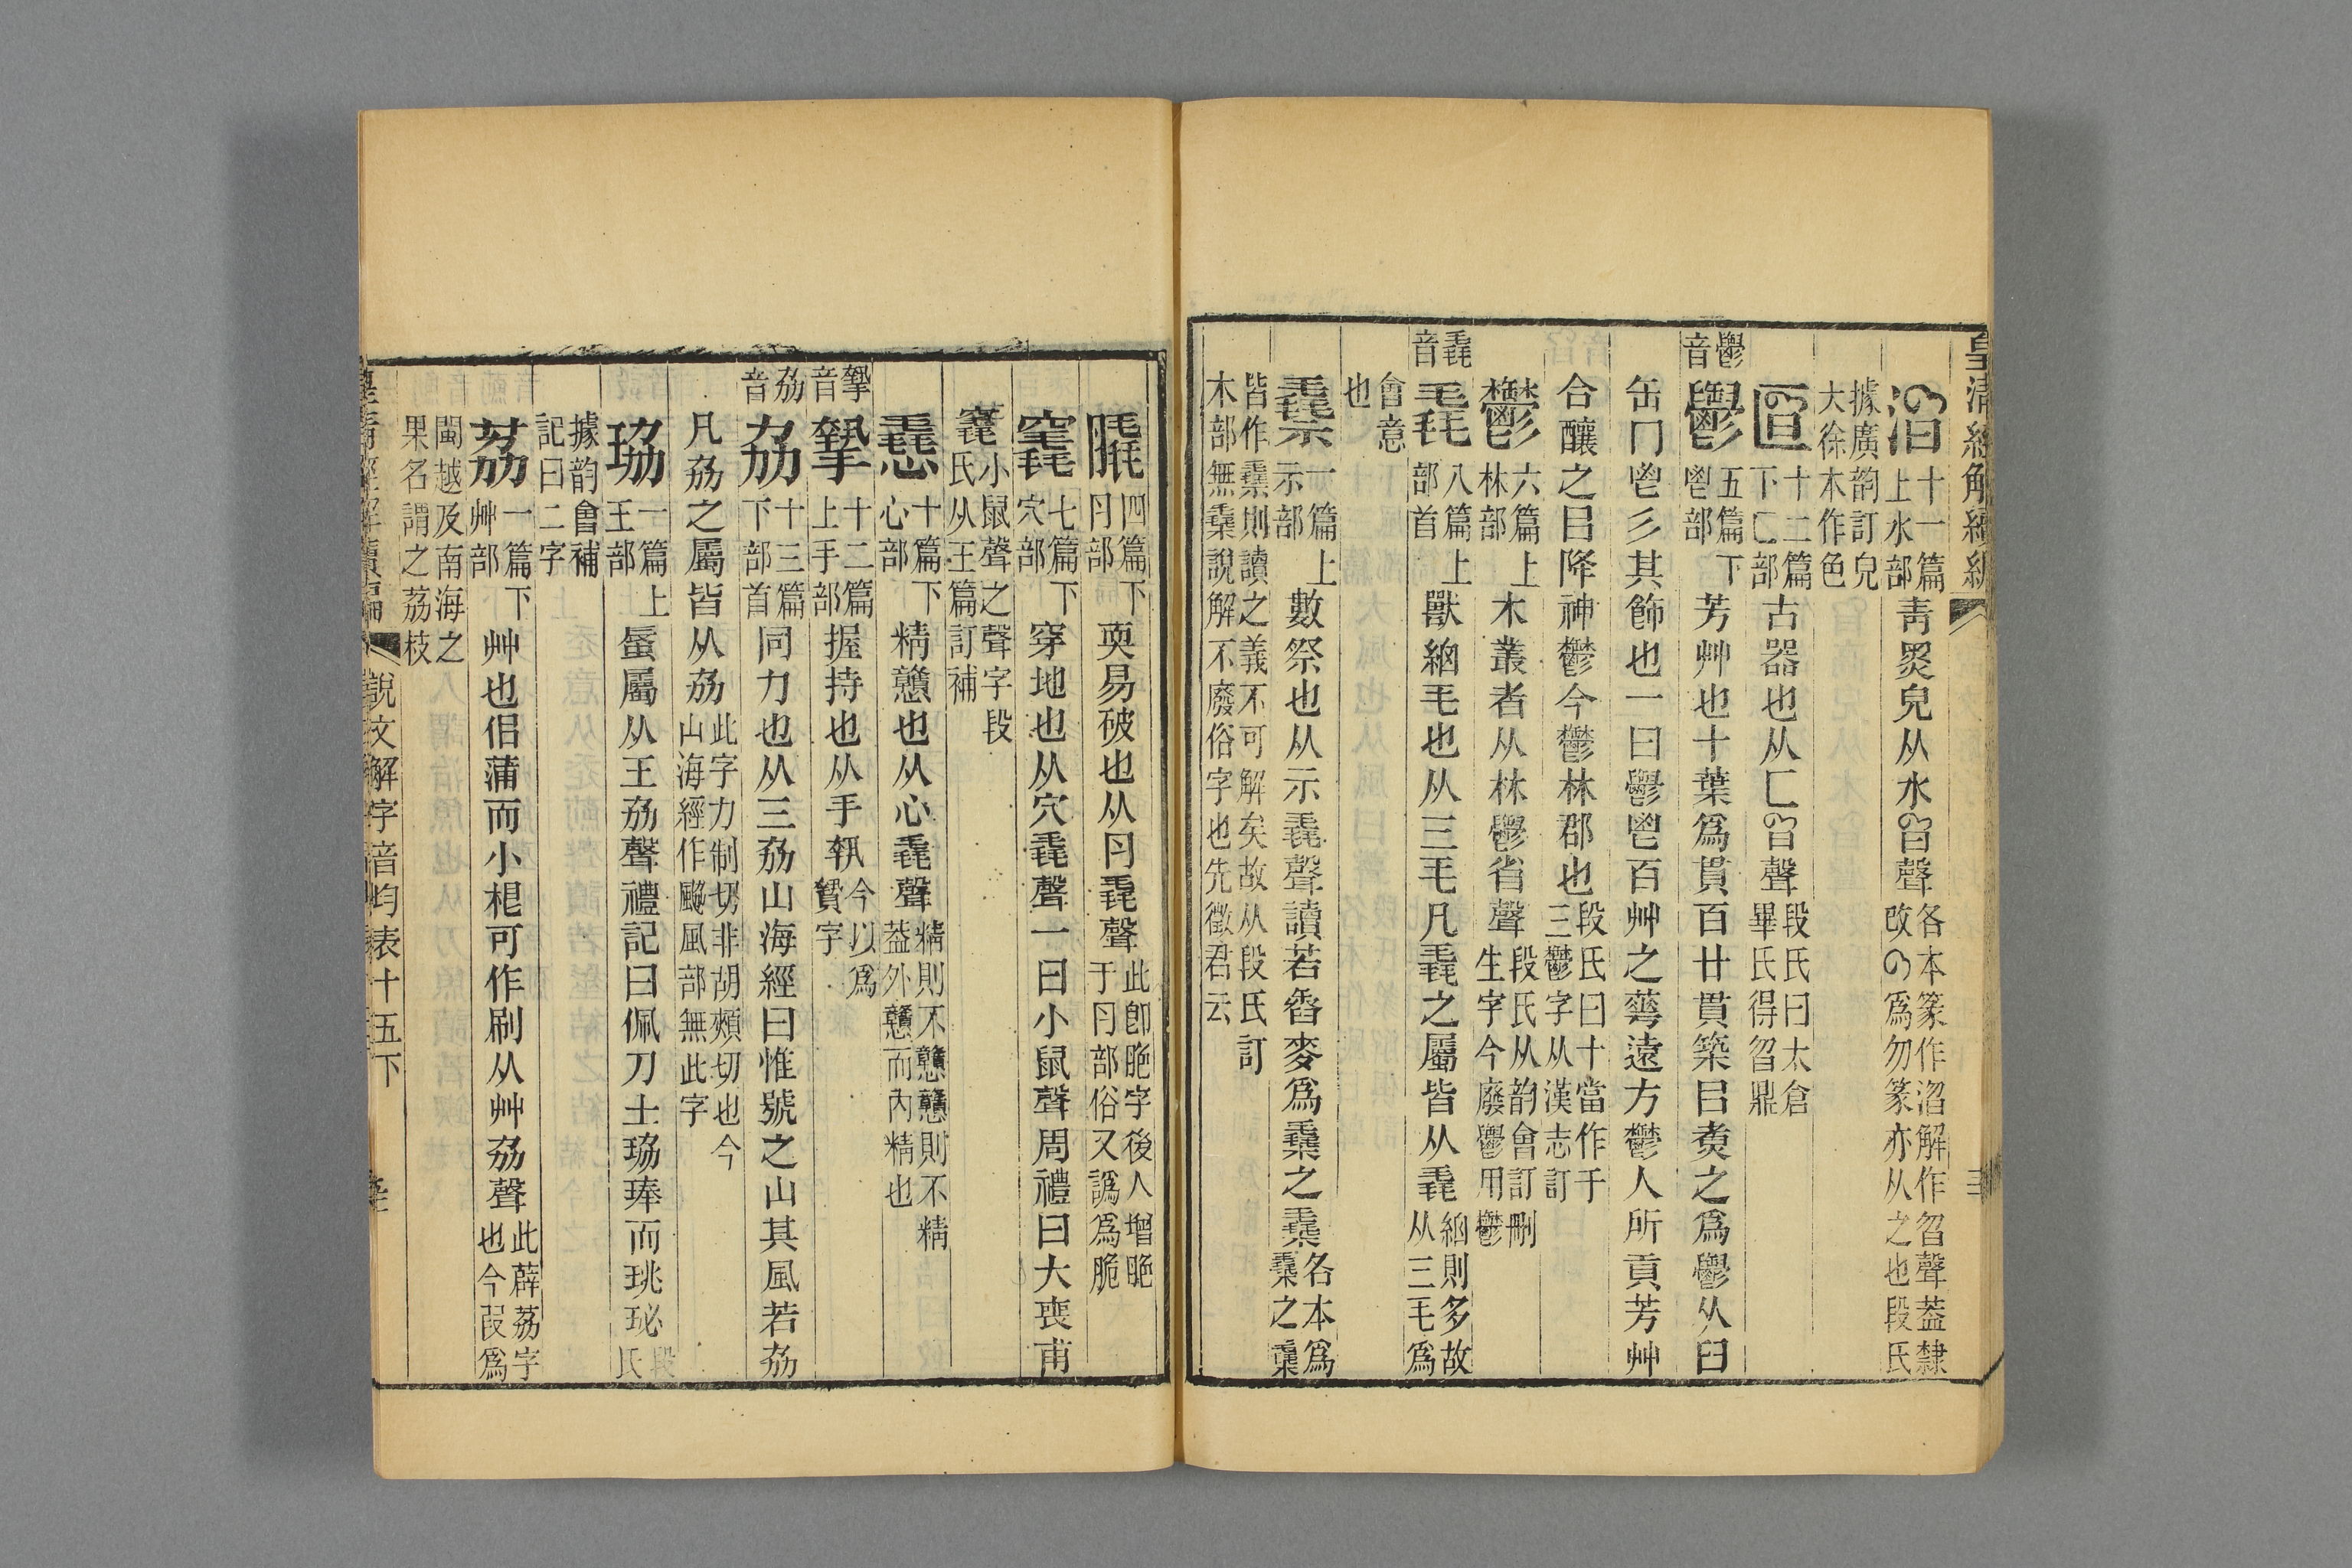 皇清經解續編
滔十一篇上水部靑黑皃从水曶聲各本篆作淴解作曶聲蓋隸改𠃊爲勿篆亦从之也段氏
據廣韵訂皃大徐本作色
匫十二篇下匚部古器也从匚曶聲段氏曰太倉畢氏得曶鼎
鬱音
鬱五篇下鬯部芳艸也十葉爲貫百廿貫築㠯煑之爲鬱从臼
缶冂鬯彡其飾也一曰鬱鬯百艸之華遠方鬱人所貢芳艸
合釀之㠯降神鬱今鬱林郡也段氏曰十當作于三鬱字从漢志訂
鬱六篇上林部木叢者从林鬱省聲段氏从韵會訂刪生字今廢鬱用鬱
毳音
毳八篇上部首獸細毛也从三毛凡毳之屬皆从毳細則多故从三毛爲
會意也
䄟一篇上示部數祭也从示毳聲讀若舂麥爲䄟之䄟各本爲
皆作則讀之義不可解矣故从段氏訂木部無說解不廢俗字也先徵君云
膬四篇下肉部耎易破也从肉毳聲此卽脃字後人增脃于肉部俗又譌爲脆
竁七篇下穴部穿地也从穴毳聲一曰小鼠聲周禮曰大喪甫
竁小鼠聲之聲字段氏从玉篇訂補
㥨十篇下心部精戇也从心毳聲精則不戇戇則不精蓋外戇而內精也
摯音
摯十二篇上手部握持也从手執今以爲贄字
劦音
劦十三篇下部首同力也从三劦山海經曰惟號之山其風若劦
凡劦之屬皆从劦此字力制切非胡頰切也今山海經作䬅風部無此字
珕一篇上王部蜃屬从王劦聲禮記曰佩刀士珕琫而珧珌段氏
據韵會補記曰二字
荔一篇下艸部艸也佀蒲而小根可作刷从艸劦聲此薜荔字也今叚爲
閩越及南海之果名謂之荔枝
皇淸經解續編 說文解字音均表十五下